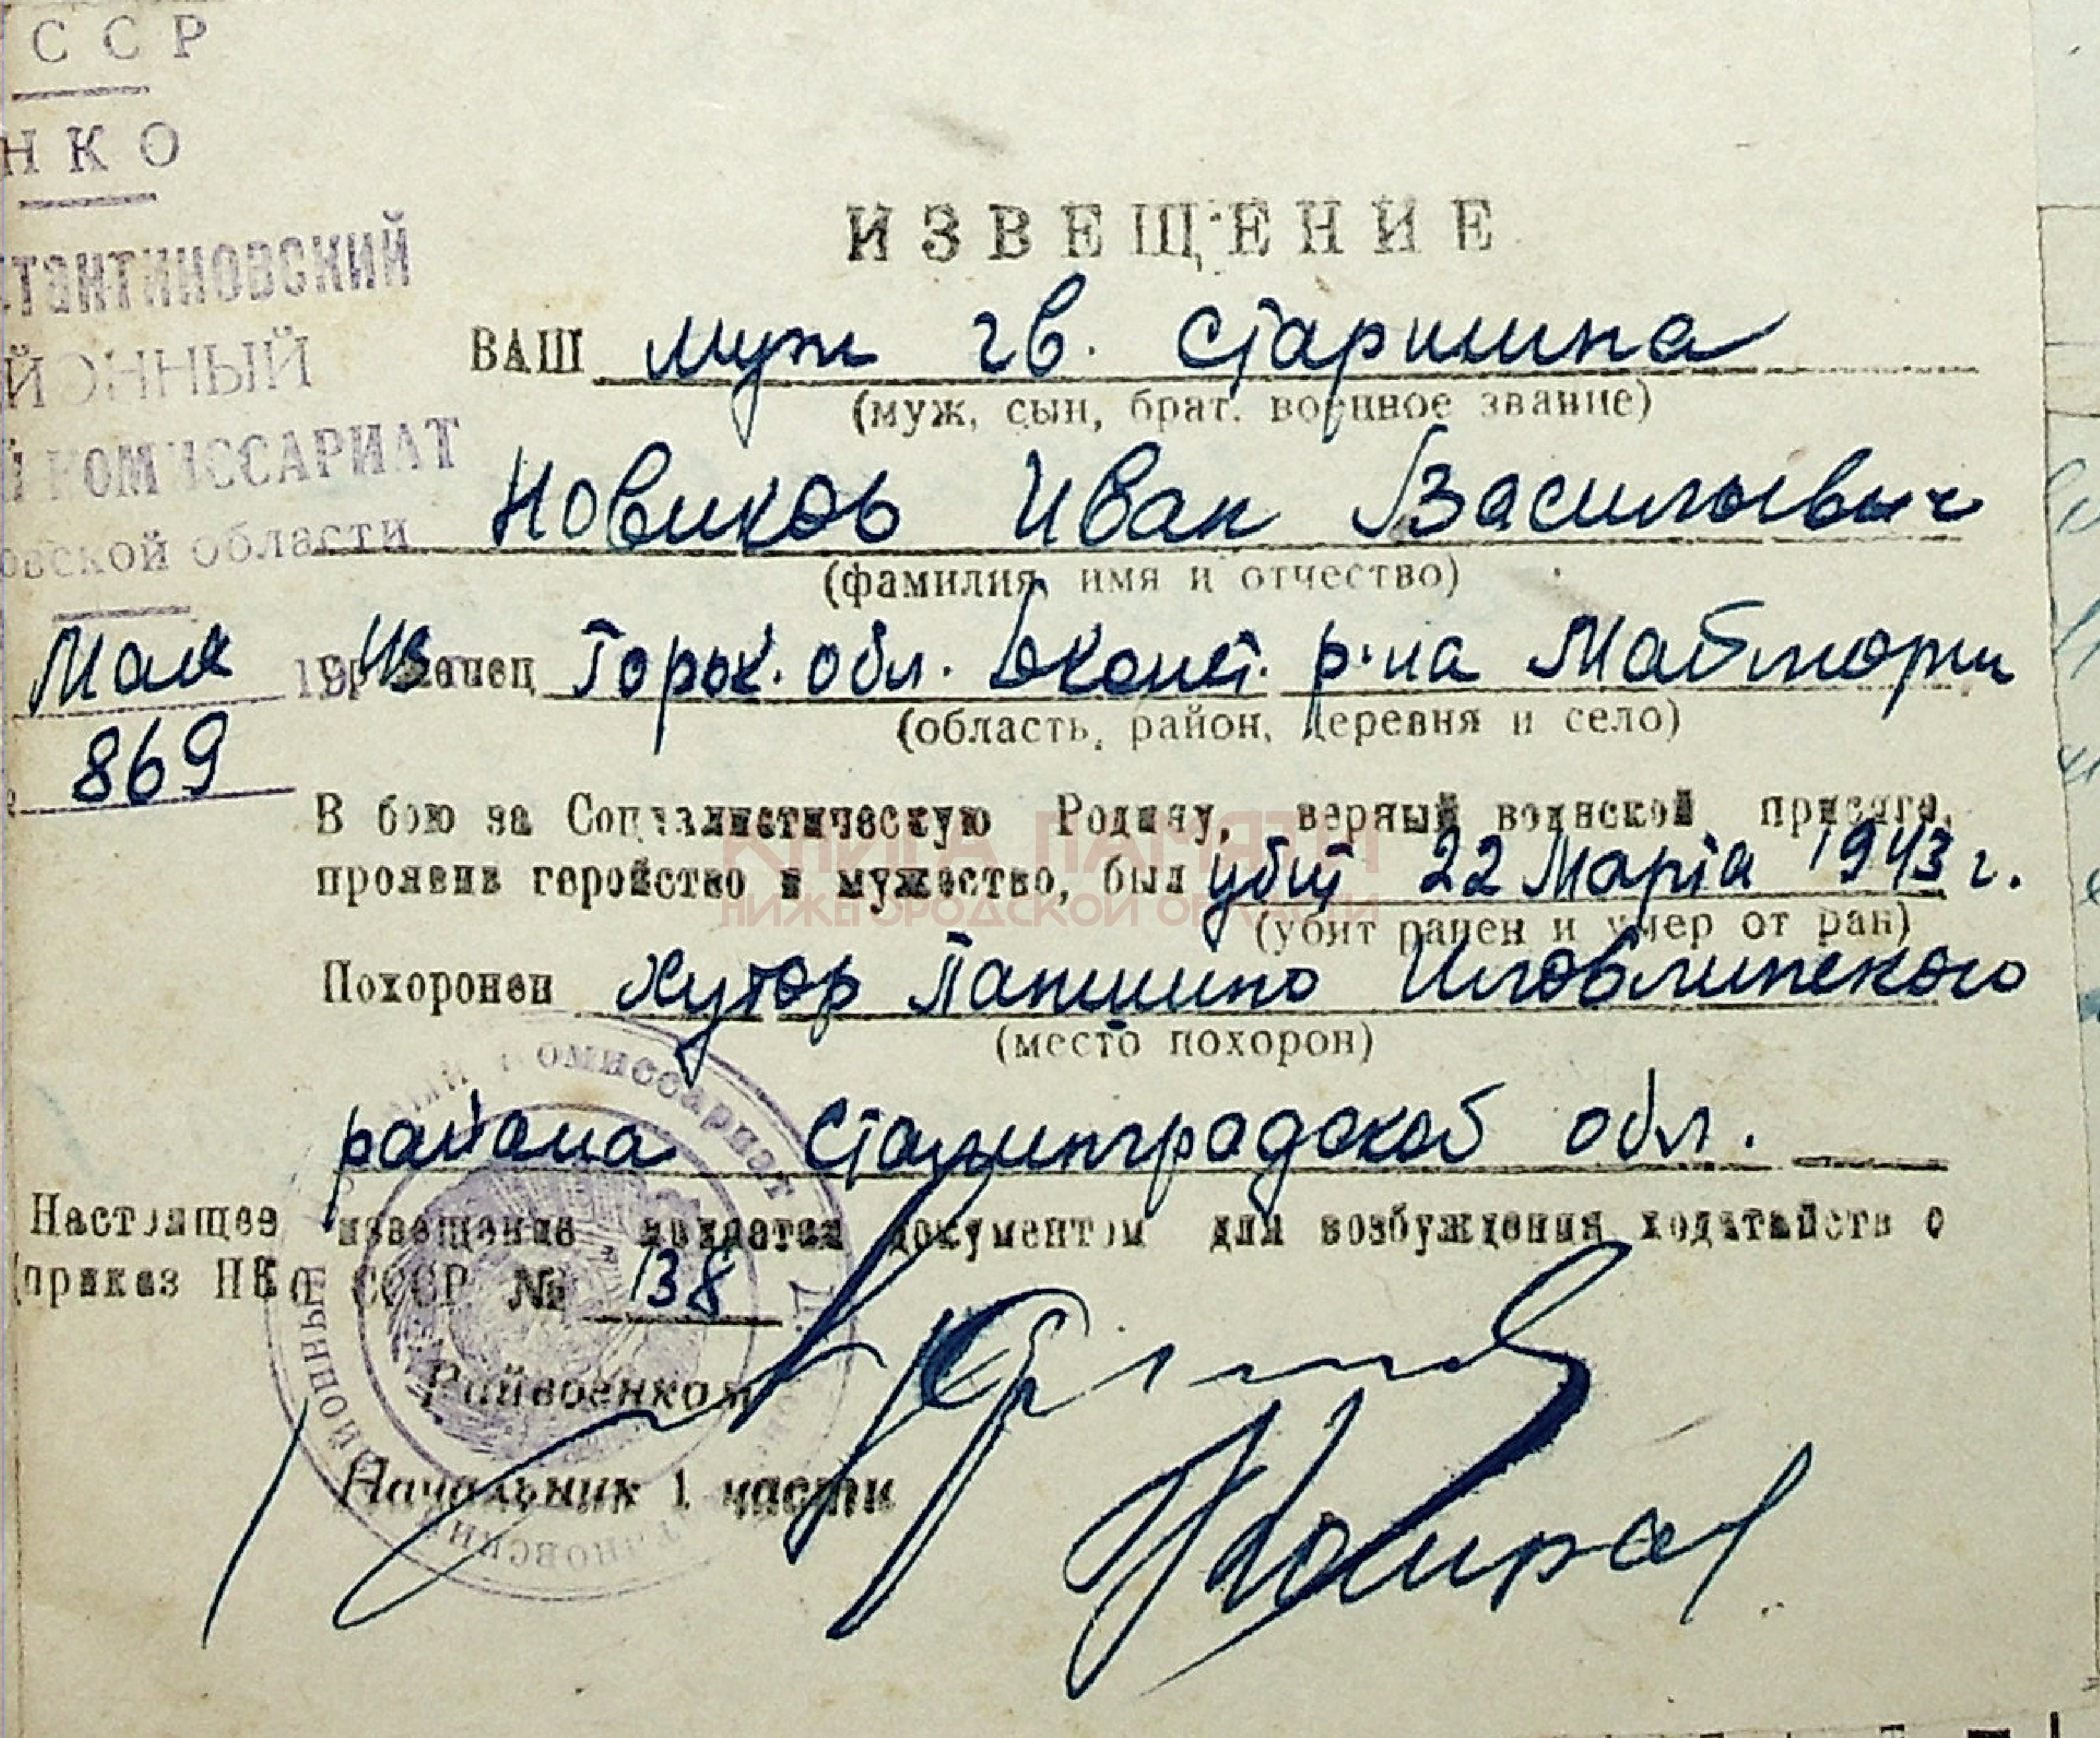 ССР
НКО
стантиновский
йонный
й комиссариат
овской области
Мая 1943
869
ИЗВЕЩЕНИЕ
ВАШ муж гв. старшина
(муж, сын, брат. военное звание)
Новиков Иван Васильевич
(фамилия, имя и отчество)
Горьк. обл. Дконст. р-на Майморы
(область, район, деревня и село)
В бою за Социалистическую Родину, верный воинской присяге,
проявив геройство и мужество, был убит 22 Марта 1943 г.
(убит ранен и умер от ран)
КНИГА ПАМЯТИ
НИЖЕГОРОДСКОЙ ОБЛАСТИ
Похоронен хутор Паншино Иловлинского
(место похорон)
района Сталинградской обл.
Настоящее извещение является документом для возбуждения ходатайств о
(приказ НКО СССР № 138
Райвоенком
Начальник 1 части